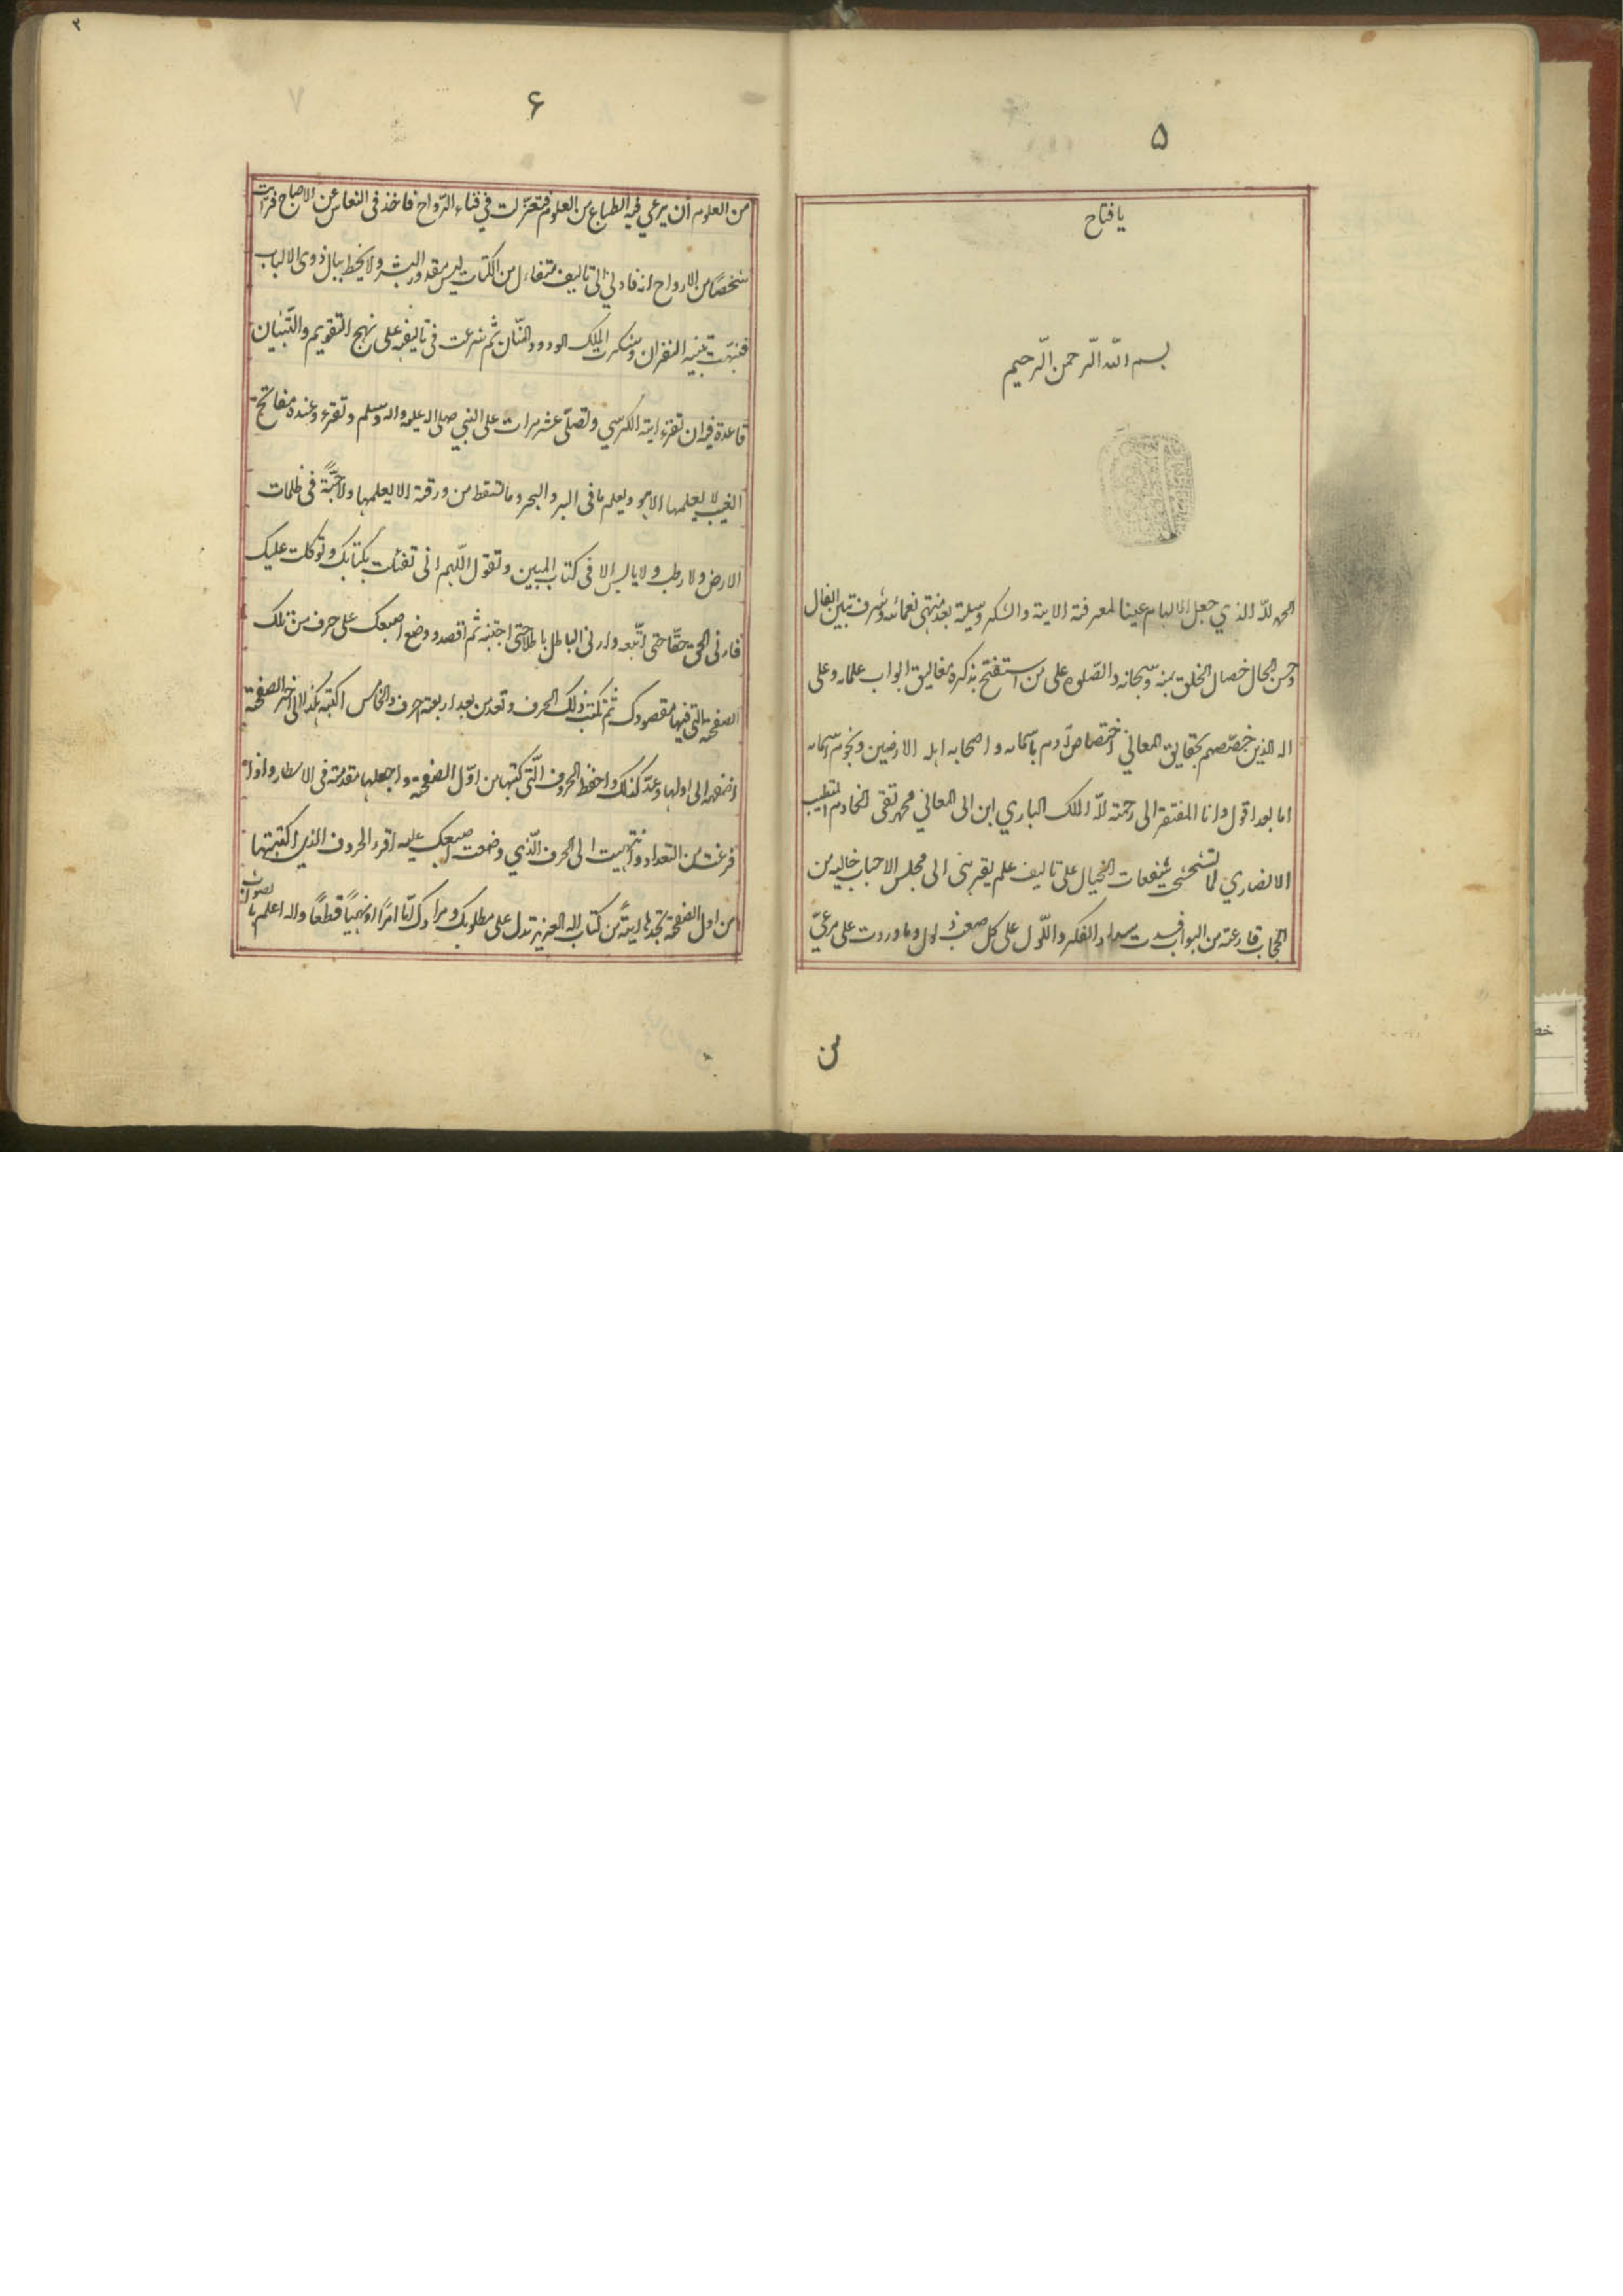 ۵
یا فتاح
بسم الله الرحمن الرحیم
الحمد لله الذي جعل الالهام عینا لمعرفة الایة والشکر وسیلة بعد منتهی نعمائه وشرف تبین الفال
وحسن الحال خصال الخلق بمنه وسبحانه والصلوة علی من استفتح بذکره مغالیق ابواب علمه وعلی
اله الذین خصصهم بحقایق المعاني اختصاص آدم باسمائه و اصحابه اهله الارضین ونجوم سمائه
اما بعد اقول وانا المفتقر الی رحمة الله الملک الباري ابن ابی المعاني محمد تقی الخادم المتطبب
الانصاري لما علی تالیف علم یقربنی الی مجلس الاحباب خالیه من
الحجاب قارعة من البواب الفکر علی کل وما وردت علی مرعیّ
من
۲
۶
من العلوم ان یرعی فیه الطباع من العلوم فتعزلت في فناء الرواح فاخذ فی النعاس عن الاصباح فرایت
شخصًا من الارواح انه قاد لي الی تالیف متفاءل من الکتاب لیس مقدور البشر ولا یخطر ببال ذوی الالباب
فنبهت وشکرت الملک الودود المنان ثم شرعت فی تالیفه علی نهج التقویم والتبیان
قاعدة فیه ان تقرء ایة الکرسي وتصلّی عشر مرات علی النبي صلی الله علیه واله وسلم وتقرء وعنده مفاتح
الغیب لا یعلمها الا هو ویعلم ما فی البر والبحر وما تسقط من ورقة الا یعلمها ولا حبّة فی ظلمات
الارض ولا رطب ولا یابس الا فی کتاب المبین وتقول اللهم انی تفئلت بکتابک وتوکلت علیک
فارنی الحق حقّا حتی اتبعه وارنی الباطل باطلا حتی اجتنبه ثم اقصد ووضع اصبعک علی حرف من تلک
الصفحة التی فیها مقصودک ثم تکتب ذلک الحرف وتعد من بعد اربعة احرف والخامس اکتبه هکذا الی اخر الصفحة
الی اولها وعدّ کذلک واحفظ الحروف الّتی کتبتها من اوّل الصفحة واجعلها مقدمة فی الاسطار واذا
فرغت من التعداد وانتهیت الی الحرف الّذي وضعت اصبعک علیه اقرء الحروف الذی اکتبتها
من اول الصفحة تجدها ایةً من کتاب الله العزیز تدل علی مطلوبک ومرادک امّا امرًا او نهیًا قطعًا والله اعلم بالصواب